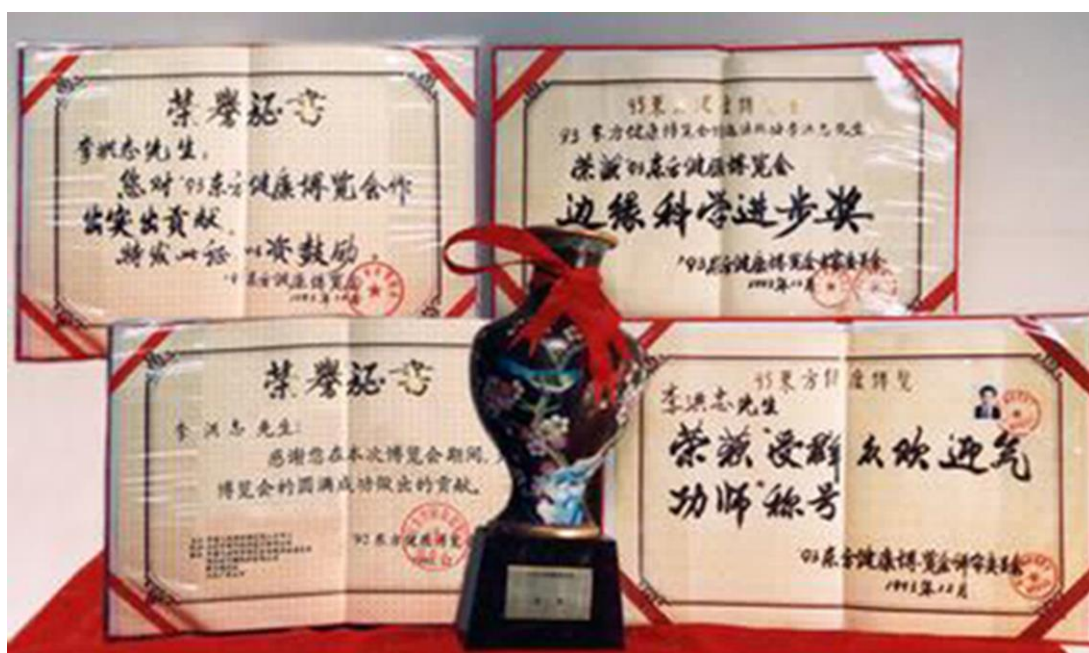 荣誉证书
李洪志先生：
您对'93东方健康博览会作
出突出贡献，
特发此证 以资鼓励。
东方健康博览会
'93东方健康博览会
李洪志先生
荣获'93东方健康博览会
边缘科学进步奖
'93东方健康博览会
1993年12月
荣誉证书
李洪志先生：
感谢您在本次博览会期间，
博览会的圆满成功做出的贡献。
东方健康博览
东方健康博览
李洪志先生
荣获"受群众欢迎气
功师"称号
'93东方健康博览会评审委员会
1993年12月